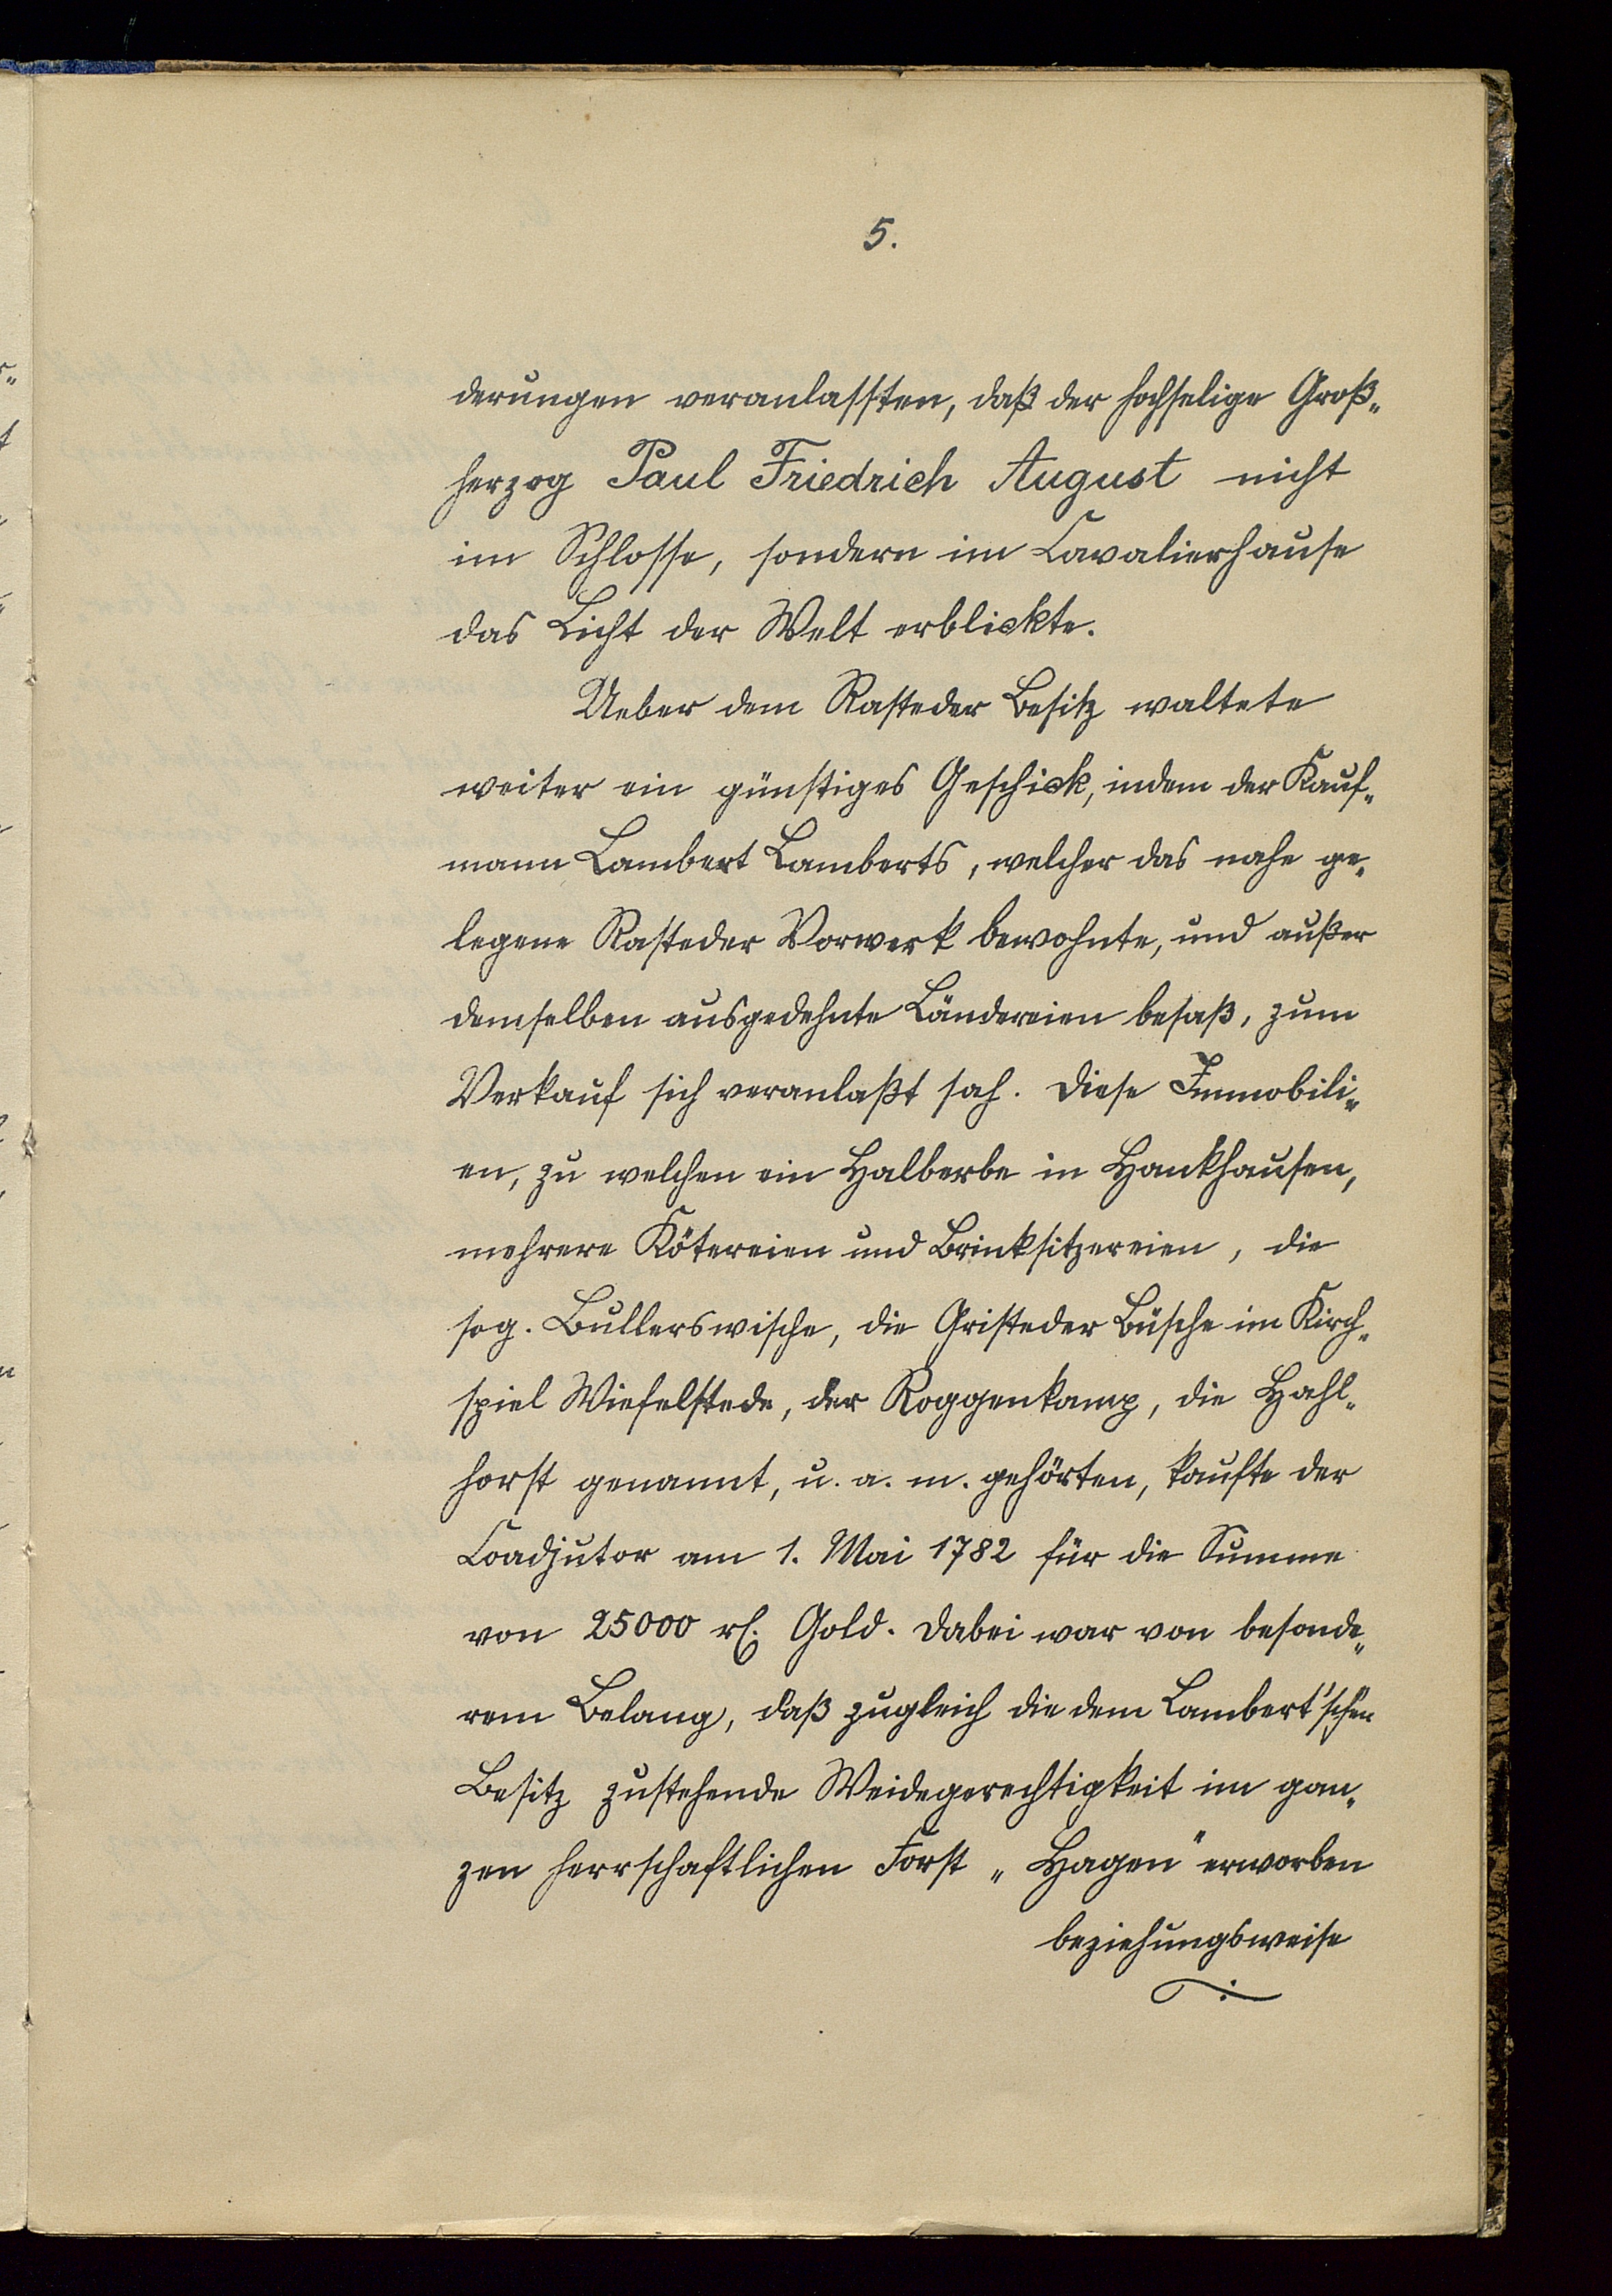 5.
derungen veranlassten, daß der hochselige Groß„
herzog Paul Friedrich August nicht
im Schlosse, sondern im Cavalierhause
das Licht der Welt erblickte.
Ueber dem Rasteder Besitz waltete
weiter ein günstiges Geschick, indem der Kauf„
mann Lambert Lamberts, welcher das nahe ge„
legene Rasteder Vorwerk bewohnte, und außer
demselben ausgedehnte Ländereien besaß, zum
Verkauf sich veranlaßt sah. Diese Immobili„
en, zu welchen ein Halberbe in Hankhausen,
mehrere Kötereien und Brinksitzereien, die
sog. Bullerswische, die Gristeder Büsche im Kirch„
spiel Wiefelstede, der Roggenkamp, die Hahl„
horst genannt, u. a. m. gehörten, kaufte der
Coadjutor am 1. Mai 1782 für die Summe
von 25000 rℓ. Gold. Dabei war von besonde„
rem Belang, daß zugleich die dem Lambert'schen
Besitz zustehende Weidegerechtigkeit im gan„
zen herrschaftlichen Forst „Hagen" erworben
beziehungsweise